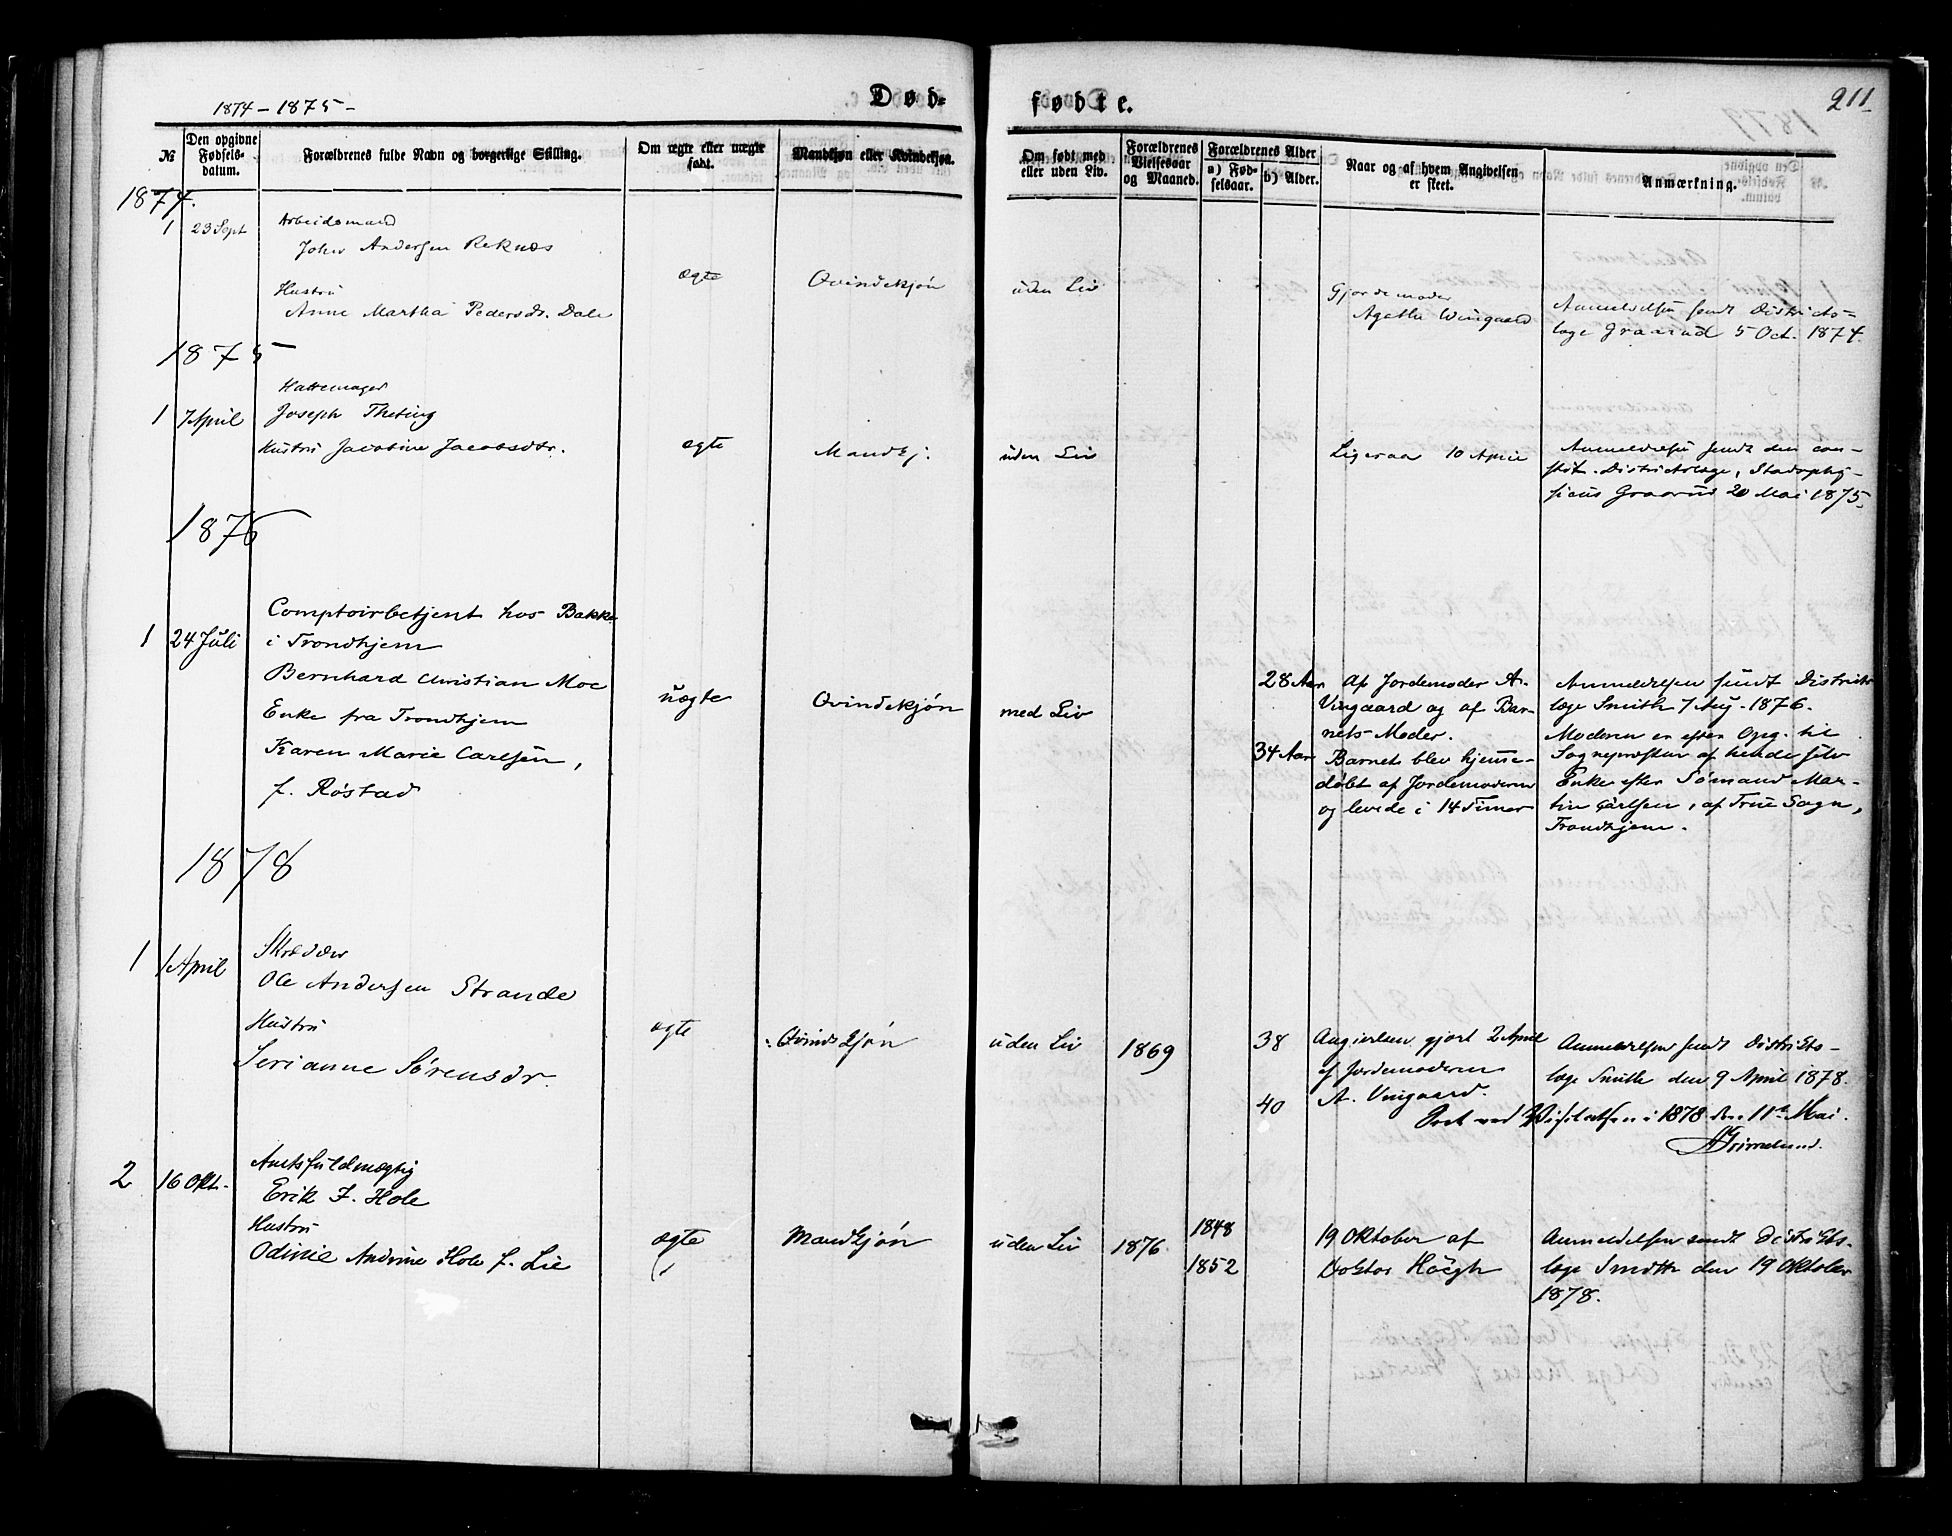 1874-1875-
Død-
fødte.
211
№
Den opgivne Fødsels-datum.
Forældrenes fulde Navn og borgerlige Stilling.
Om ægte eller uægte født.
Mandkjøn eller Kvindekjøn.
Om født med eller uden Liv.
Forældrenes Vielsesaar og Maaned.
Forældrenes Alder
a) Fød-selsaar.
b) Alder.
Naar og af hvem Angivelsen er skeet.
Anmærkning.
1874.
1
23 Sept
Arbeidsmand
John Andersen Reknæs
Hustru
Anne Martha Pedersdr. Dale
Ægte
Qvindekjøn
uden Liv
Gjordemoder
Agathe Wingaard
Anmeldelsen sendt Districts-
læge Graarud 5 Oct. 1874.
1875
1
7 April
Hattemager
Joseph Theting
Hustru Jacobine Jacobsdtr.
ægte
Mandkj.
uden Liv
Ligesaa 10 April
Anmeldelsen sendt den con-
stit. Districtslæge, Stadsphy-
sicus Graarud 20 Mai 1875.
1876
1
24 Juli
Comptoirbetjent hos Bakke
i Trondhjem
Bernhard Christian Moe
Enke fra Trondhjem
Karen Marie Carlsen,
f. Røstad
uægte
Qvindekjøn
med Liv
28 Aar
34 Aar
Af Jordemoder A.
Vingaard og af Bar-
nets Moder.
Barnet blev hjemme-
døbt af Jordemoderen
og levede i 14 Timer
Anmeldelsen sendt Districts
læge Smith 7 Aug. 1876.
Moderen er efter Opg. til
Sognepræsten af hende selv
Enke efter Sømand Mar-
tin Carlsen, af Frue Sogn,
Trondhjem.
1878
1
1 April
Skrædder
Ole Andersen Strande
Hustru
Serianne Sørensdr.
ægte
Qvindekjøn
uden Liv
1869
38
40
Angivelsen gjort 2 April
af Jordemoderen
A. Vingaard.
Anmeldelsen sendt Distrikts-
læge Smith den 9 April 1878.
Seet ved Visitatsen i 1878 den 11te Mai.
AGrimelund.
2
16 Okt.
Amtsfuldmægtig
Erik J. Hole
Hustru
Odinie Andrine Hole f. Lie
ægte
Mandkjøn
uden Liv
1876.
1848
1852
19 Oktober af
Doktor Høegh
Anmeldelsen sendt Distrikts-
læge Smith den 19 Oktober
1878.